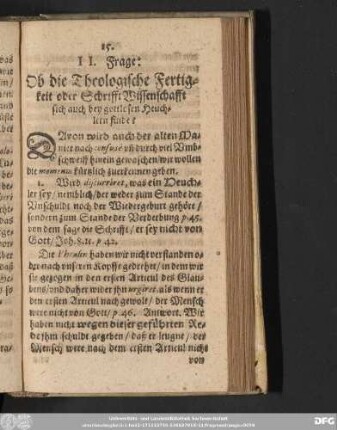 15.
II. Frage:
Ob die Theologische Fertig-
keit oder Schrifft Wissenschafft
sich auch bey gottlosen Heuch-
lern finde?
DAvon wird auch der alten Ma-
nier nach confuse vñ durch viel Vmb-
schweiff hinein gewaschen/wir wollen
die momenta kürtzlich zuerkennen geben.
1. Wird discurriret, was ein Heuch-
ler sey/nemblich/der weder zum Stande der
Vnschuldt noch der Wiedergeburt gehöre/
sondern zum Stande der Verderbung p. 45.
von dem sage die Schrifft/er sey nicht von
Gott/Joh. 8. p. 42.
Die haben wir nicht verstanden o-
der nach vnserm Kopffe gedrehet/in dem wir
sie gezogen in den ersten Articul des Glau-
bens/vnd daher wider jhn urgiret, als wenn er
den ersten Articul nach gewolt/der Mensch
were nicht von Gott/p. 46. Antwort. Wir
haben nicht wegen dieser geführten Re-
de jhm schuldt gegeben/daß er leugne/der
Mensch were nach dem ersten Articul nicht
von